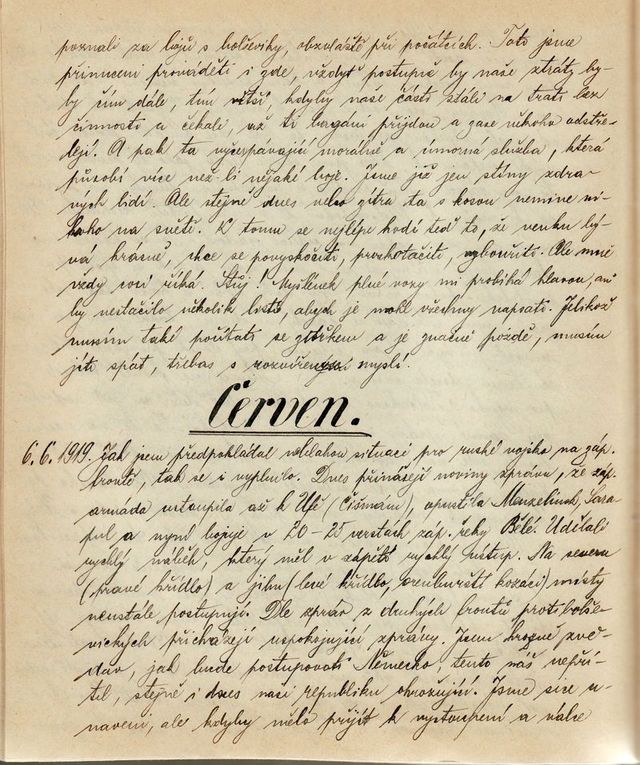 poznali za bojů s bolševiky, obzvláště při počátcích. Toto jsme
přinuceni prováděti i zde, vždyť postupně by naše ztráty by-
ly čím dále, tím větší, kdyby naše části stáli na trati bez
činnosti a čekali, až ti bagáni přijdou a zase někoho odstře-
lejí. A pak ta vyčerpávající morálně a úmorná služba, která
působí více než-li nějaké boje. Jsme již jen stíny zdra-
vých lidí. Ale stejně dnes nebo zítra ta s kosou nemine ni-
koho na světě. K tomu se nejlépe hodí teď to, že venku bý-
vá krásně, chce se povyskočiti, proskotačiti, vybouřiti. Ale mně
vždy cosi říká. Stůj! Myšlének plné vozy mi probíhá hlavou, ani
by nestačilo několik listů, abych je mohl všechny napsati. Jelikož
musím také počítati se zítřkem a je značně pozdě, musím
jíti spát, třebas s rozvířenou myslí.
Červen.
6.6.1919. Jak jsem předpokládal neblahou situaci pro ruské vojsko na záp.
frontě, tak se i vyplnilo. Dnes přinášejí noviny zprávu, že záp.
armáda ustoupila až k Ufě (Čišmám), opustila Menzelinsk, Sara-
pul a nyní bojuje v 20-25 verstách záp. řeky Bělé. Udělali
rychlý náběh, který měl v zápětí rychlý ústup. Na severu
(pravé křídlo) a jihu (levé křídlo, orenburští kozáci) místy
neustále postupují. Dle zpráv z druhých frontů protibolše-
vických přicházejí uspokojující zprávy. Jsem hrozně zvě-
dav, jak bude postupovati Německo, tento náš nepří-
tel, stejně i dnes naši republiku ohrožující. Jsme sice u-
naveni, ale kdyby mělo přijít k vystoupení a válce